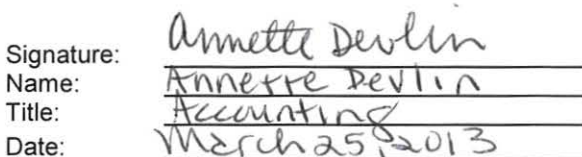 Signature: Annette Devlin
Name: Annette Devlin
Title: Accounting
Date: March 25, 2013